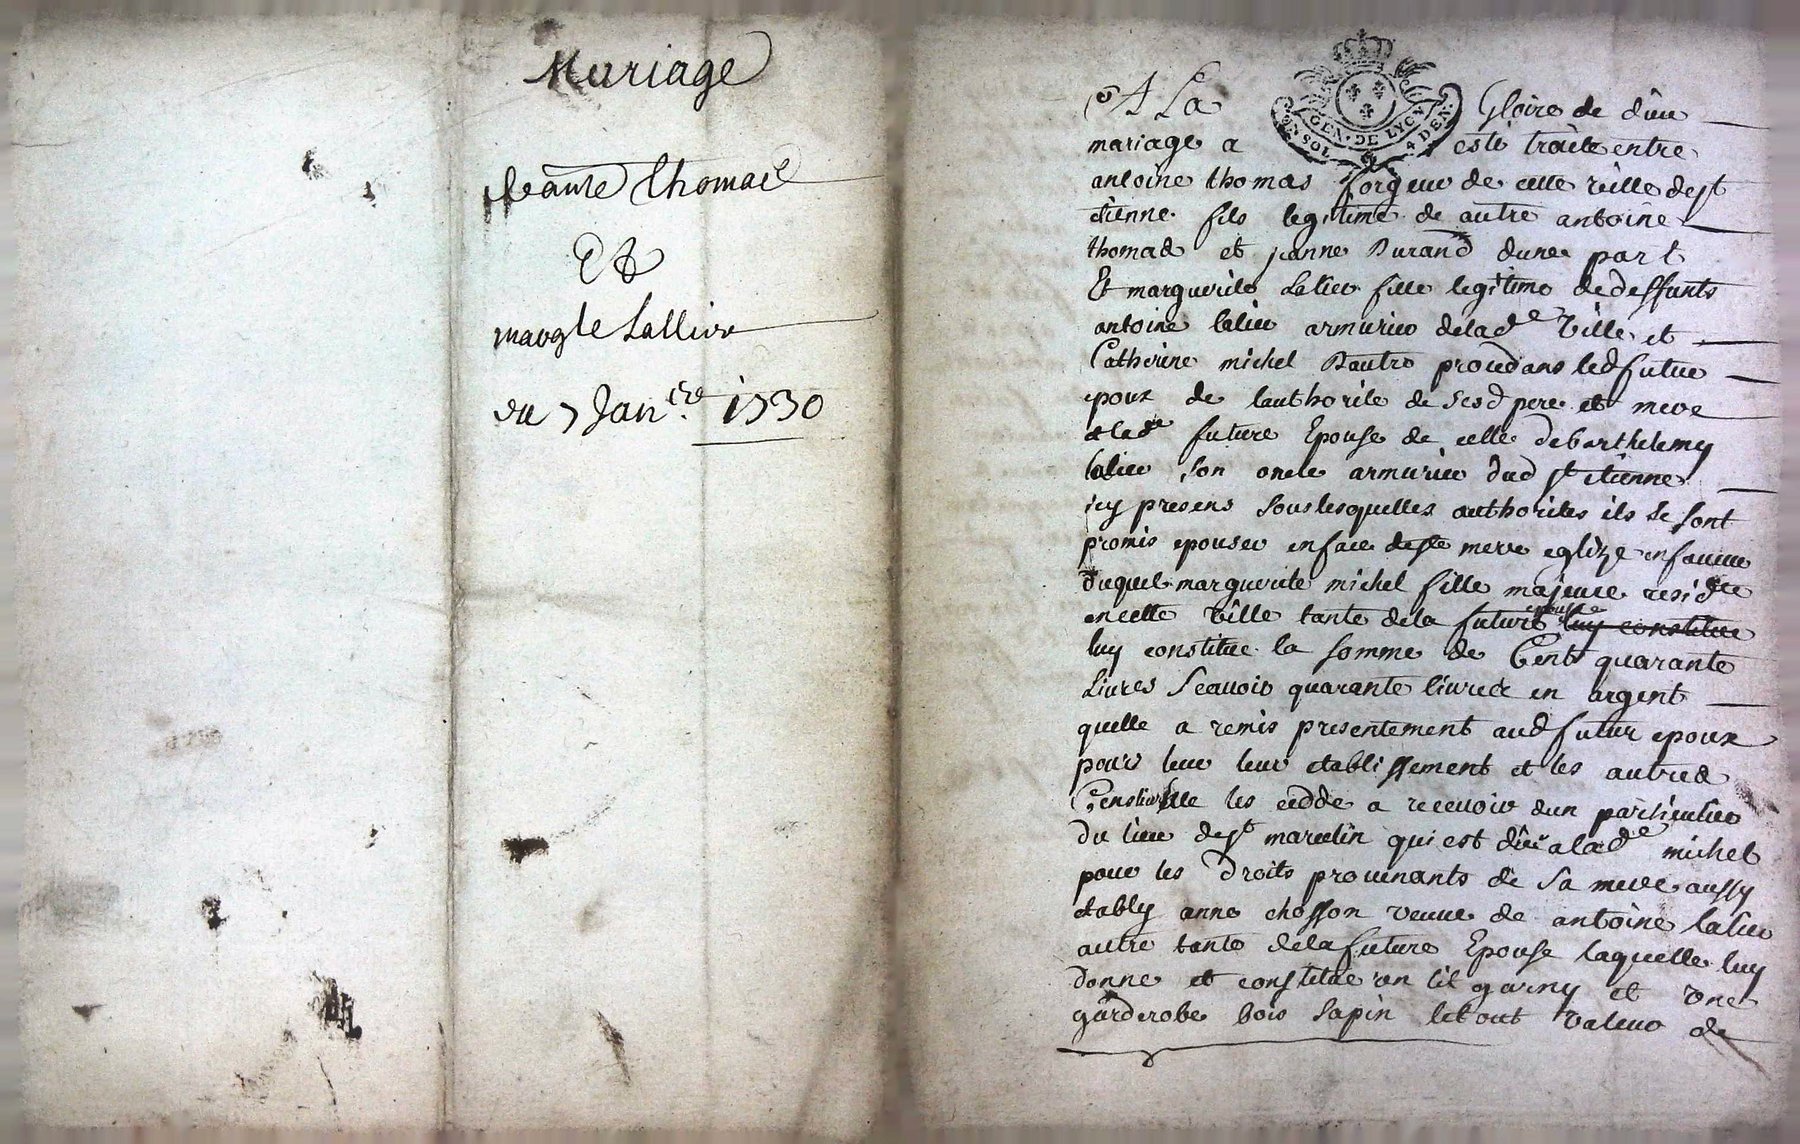 Mariage
deantre thomas
Et
margte Lallier
du 7 Jancre 1730
A La Gloire de dieu
GEN. DE LYON
2 SOL 4 DEN.
mariage a esté traité entre
antoine thomas forgeur de cette ville de st
etienne fils legitime de autre antoine
thomas et jeanne Durand dune part
Et marguerite Lalier fille legitime de deffunts
antoine lalier armurier de lade ville et
Catherine michel Dautre procedans led futur
epoux de lauthorité de sesd pere et mere
et lade future Epouse de celle de barthelemy
lalier son oncle armurier dud st etienne
icy presens sous lesquelles authorites ils se sont
promis epouser en face de ste mere eglize en faveur
duquel marguerite michel fille majeure reside
en cette ville tante de la future epouse luy constitue
luy constitue la somme de Cent quarante
Livres Scavoir quarante livres en argent
quelle a remis presentement aud futur epoux
pour leur etablissement et les autres
Cens livres elle les cedde a recevoir dun particulier
du lieu de st marcelin qui est dû a lade michel
pour les Droits provenants de Sa mere aussy
etably anne chosson veuve de antoine lalier
autre tante de la future Epouse laquelle luy
donne et constitue un lit garny et une
garderobe bois sapin le tout valeur de